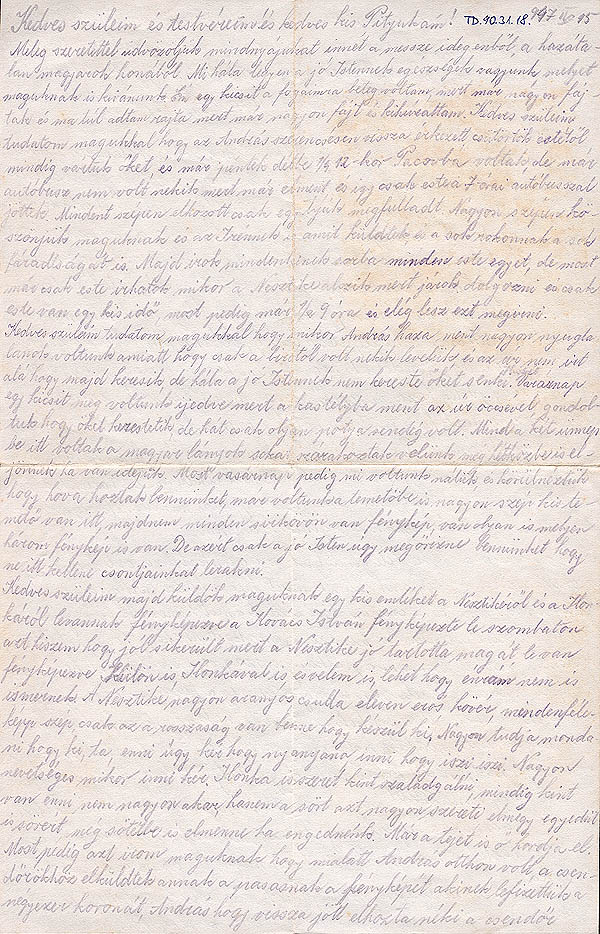 Kedves szüleim és testvéreim és kedves kis Pityukám! TD.10.31.18. 947 IV 15
Meleg szeretettel üdvözöljük mindnyájukat innet a messze idegenből, a hazáta-
lan magyarok honából. Mi hála legyen a jó Istennek egészségek vagyunk melyet
maguknak is kivánunk. Én egy kicsit a fogaimra beteg voltam, mert már nagyon fáj-
tak és ma túl adtam rajta mert már nagyon fájt is kihuzattam. Kedves szüleim
tudatom magukkal hogy az András szerencsésen vissza érkezett, csütörtök estétől
mindig vártuk őket, és már péntek délbe 1/2 12-kor Pacovba voltak, de már
autóbusz nem volt nekik mert már elment és így csak este a 7 órai autóbusszal
jöttek. Mindent szépen elhozott csak egy tyúk megfulladt. Nagyon szépen kö-
szönjük maguknak és az Irénnek is amit küldtek és a sok rokonnak a sok
fáradtságát is. Majd irok mindenkinek sorba minden este egyet, de most
már csak este irhatok mikor a Nesztike alszik mert járok dolgozni és csak
este van egy kis idő most pedig már 1/2 9 óra és elég lesz ezt megirni.
Kedves szüleim tudatom magukkal hogy mikor András haza ment nagyon nyugta
lanok voltunk amiatt hogy csak a birótól volt nekik levelük és az úr nem irt
alá hogy majd keresik, de hála a jó Istennek nem kereste őket senki. Vasárnap
egy kicsit meg voltunk ijedve mert a kastélyba ment az úr öccsével, gondol-
tuk hogy őket kerestetik, de hát csak olyan vendég volt. Mind a két ünnep
be itt voltak a magyar lányok sokat szórakoztak velünk még hétközbe is el-
jönnek ha van idejük. Most vasárnap pedig mi voltunk náluk és körülnéztük
hogy hova hoztak bennünket, mare voltunk a temetőbe is nagyon szép kis te-
mető van itt, majdnem minden sirkövön van fénykép, van olyan is melyen
három fénykép is van. De azért csak a jó Isten úgy megőrizne bennünket hogy
ne itt kelleni csontjainkat lerakni.
Kedves szüleim majd küldök maguknak egy kis emléket a Nesztikéről és a Ilon-
káról levannak fényképezve a Kovács István fényképezte le szombaton
azt hiszem hogy jól sikerült mert a Nesztike jó tartotta magát le van
fényképezve külön is, Ilonkával is és velem is, lehet hogy engem nem is
ismernek. A Nesztike nagyon aranyos csuda eleven erős kövér, mindenféle-
képp szép csak az a rosszaság van benne hogy készül ki. Nagyon tudja monda
ni hogy ki, ta, enni úgy kér hogy nyanyana inni hogy iszi iszi. Nagyon
nevetséges mikor inni kér. Ilonka is szeret kint szaladgálni, mindig kint
van enni nem nagyon akar, hanem a sört azt nagyon szereti elmegy egyedül
is sörért még sötétbe is elmenne ha engednénk. Már a tejet is ő hordja el.
Most pedig azt irom maguknak hogy mialatt András otthon volt, a csen-
dőrökhöz elküldték annak a pasasnak a fényképét akinek lefizettük a
négyezer koronát, András hogy vissza jött elhozta néki a csendőr